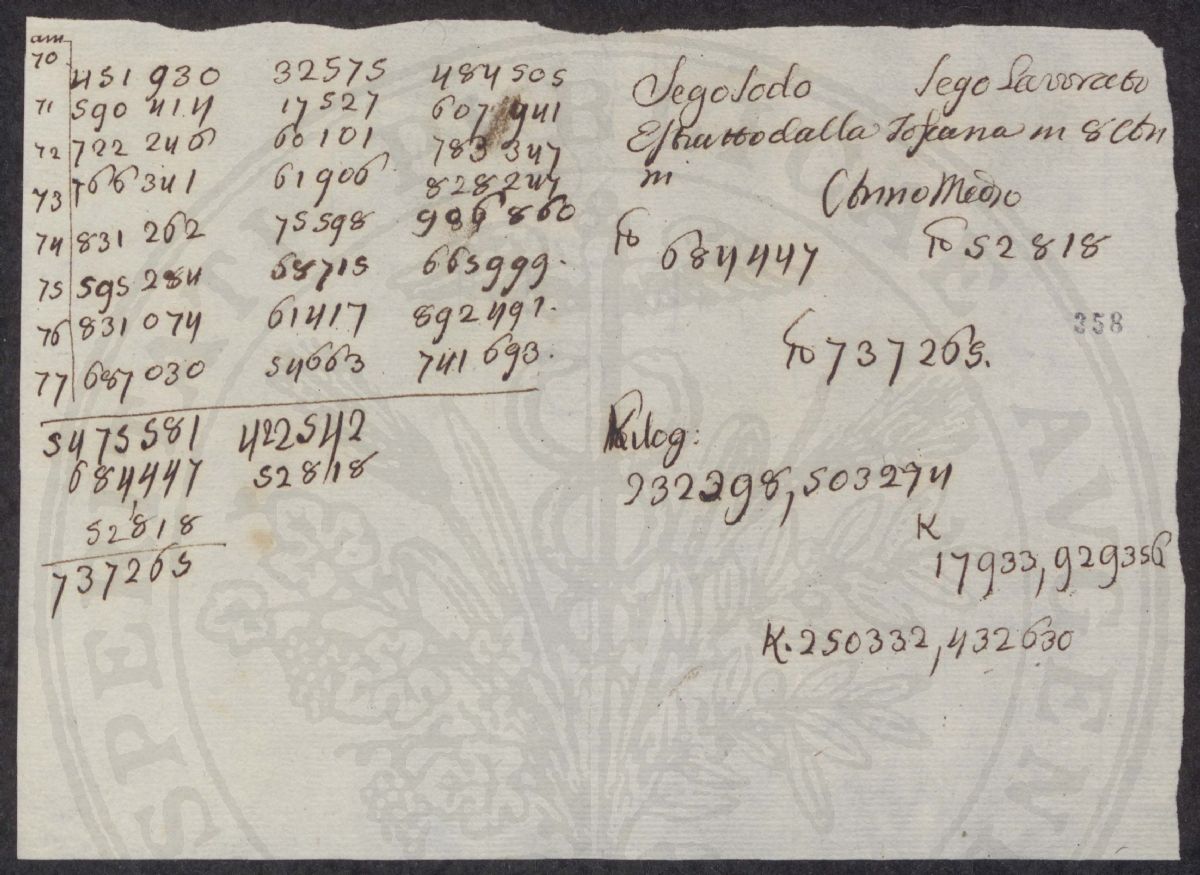 am
70 451 930 32575 484505
71 590 414 17 527 607 941
72 722 246 60 101 783 347
73 766 341 61 906 828 247
74 831 262 75 598 906 860
75 595 284 68715 665999.
76 831 074 61417 892 491.
77 687 030 54663 741 693.
5475 581 422542
684,447 52818
52818
737265
Sego Sodo Sego Lavorato
Estratto dalla Toscana in 8 Ann
ni
Anno Medio
℔ 684447 ℔ 52818
358
℔ 737265.
Kilog:
232398,503274
K
17933,929356
K. 250332,432630